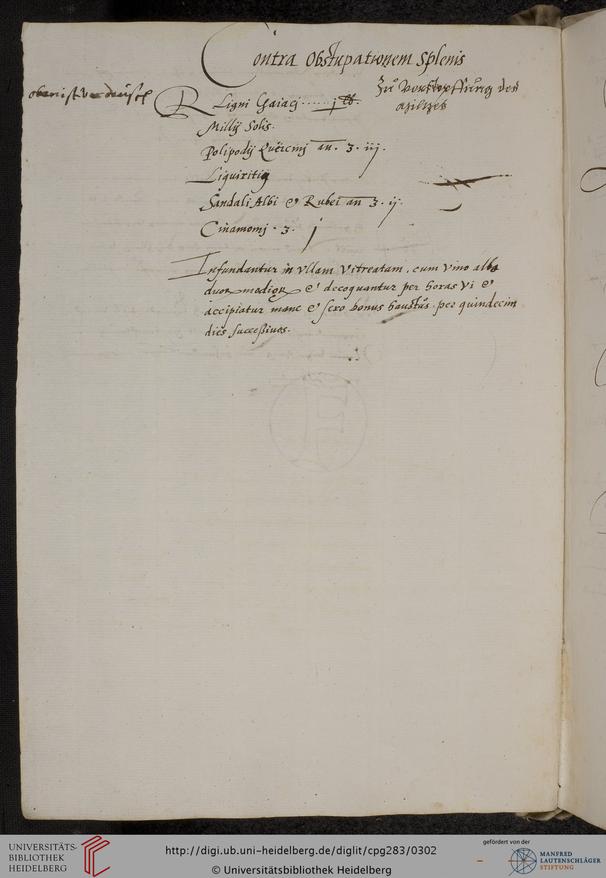 Contra Obstupationem Splenis
Zu Verstopffung des
Miltzes
oben ist verdeusch
R Ligni Gaiaci ...... j lb.
Millij Solis.
Polipodij Quercinj an. ʒ. iij.
Liquiritię
Sandali Albi & Rubei an ʒ. ij.
Cinamomj . ʒ. j
Infundantur in vllam vitreatam, cum vino albo
duoꝝ medioꝝ & decoquantur per horas vi &
accipiatur mane & sero bonus haustus per quindecim
dies successiuos.
UNIVERSITÄTS-
BIBLIOTHEK
HEIDELBERG
http://digi.ub.uni-heidelberg.de/diglit/cpg283/0302
© Universitätsbibliothek Heidelberg
gefördert von der
MANFRED
LAUTENSCHLÄGER
STIFTUNG